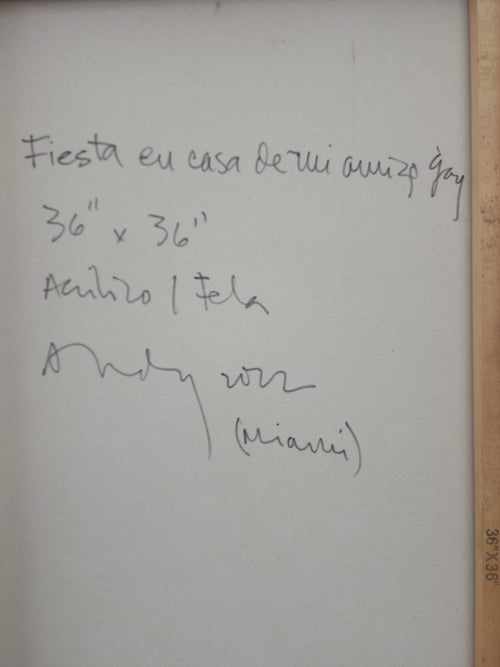 Fiesta en casa de mi amigo gay
36" x 36"
Acrilico / Tela
Andy 2022
(Miami)
36"X36"